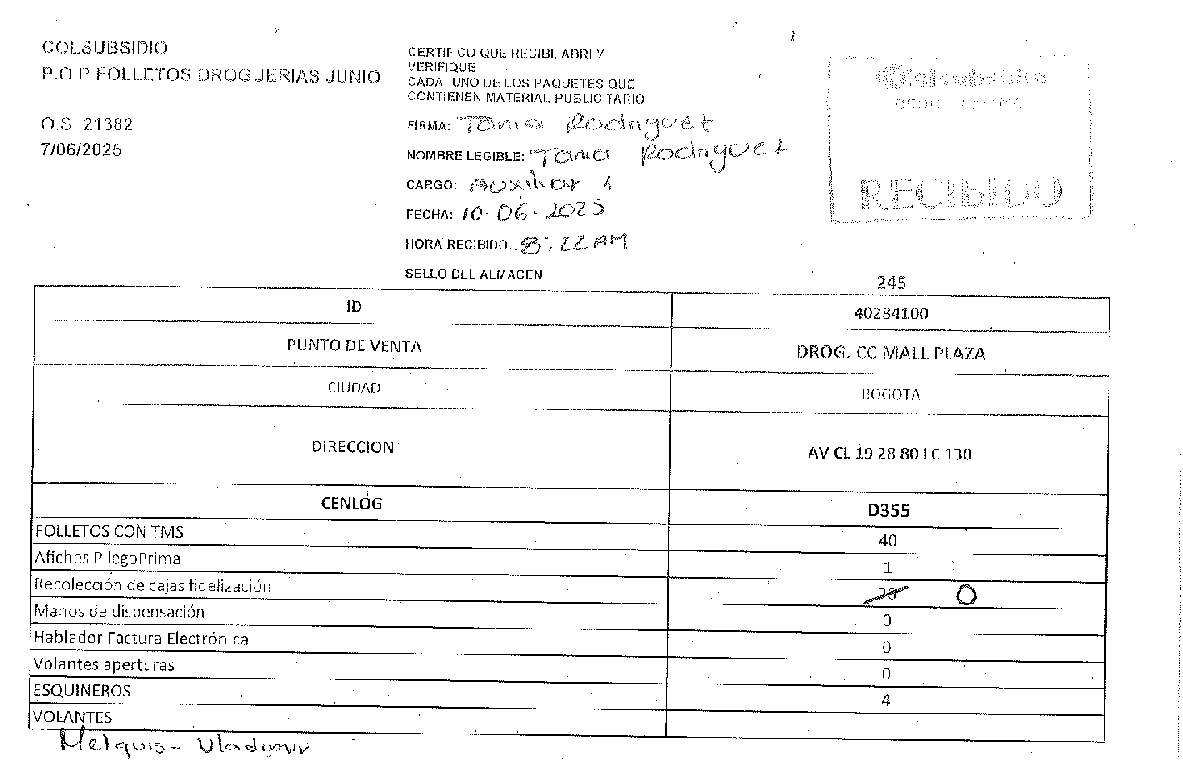 COLSUBSIDIO
P.O.P FOLLETOS DROGUERIAS JUNIO
O.S. 21382
7/06/2025
CERTIFICO QUE RECIBI, ABRI Y
VERIFIQUE
CADA UNO DE LOS PAQUETES QUE
CONTIENEN MATERIAL PUBLICITARIO
FIRMA: Tania Rodriguez
NOMBRE LEGIBLE: Tania Rodriguez
CARGO: Auxiliar 1
FECHA: 10-06-2025
HORA RECIBIDO: 8:22 AM
SELLO DEL ALMACEN
Colsubsidio
RECIBIDO
245
ID 40284100
PUNTO DE VENTA DROG. CC MALL PLAZA
CIUDAD BOGOTA
DIRECCION AV CL 19 28 80 LC 130
CENLOG D355
FOLLETOS CON TMS 40
Afiches PliegoPrima 1
Recolección de cajas fidelización 0
Manos de dispensación 0
Hablador Factura Electrónica 0
Volantes aperturas 0
ESQUINEROS 4
VOLANTES
Melquis- Vladimir